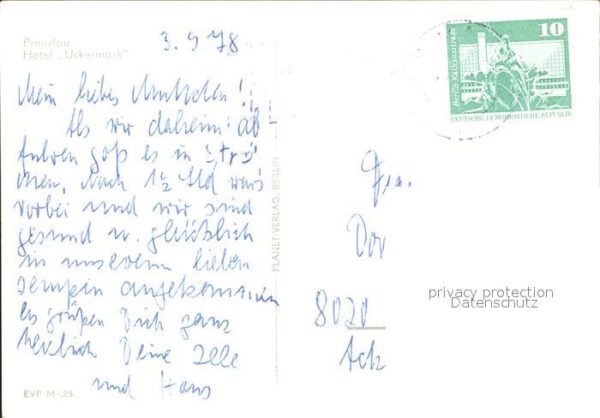 Prenzlau
Hotel „Uckermark"
3. 9 78
Mein liebes Muttchen!
Als wir daheim ab
fuhren goß es in Strö
men. Nach 1½ Std war's
vorbei und wir sind
gesund u. glücklich
in unserem lieben
Templin angekommen
Es grüßen Dich ganz
herzlich Deine Ille
und Hans
EVP M -,25
PLANET-VERLAG, BERLIN
10
Berlin-Rathausstraße
DEUTSCHE DEMOKRATISCHE REPUBLIK
Fra.
Dor
8020
privacy protection
Datenschutz